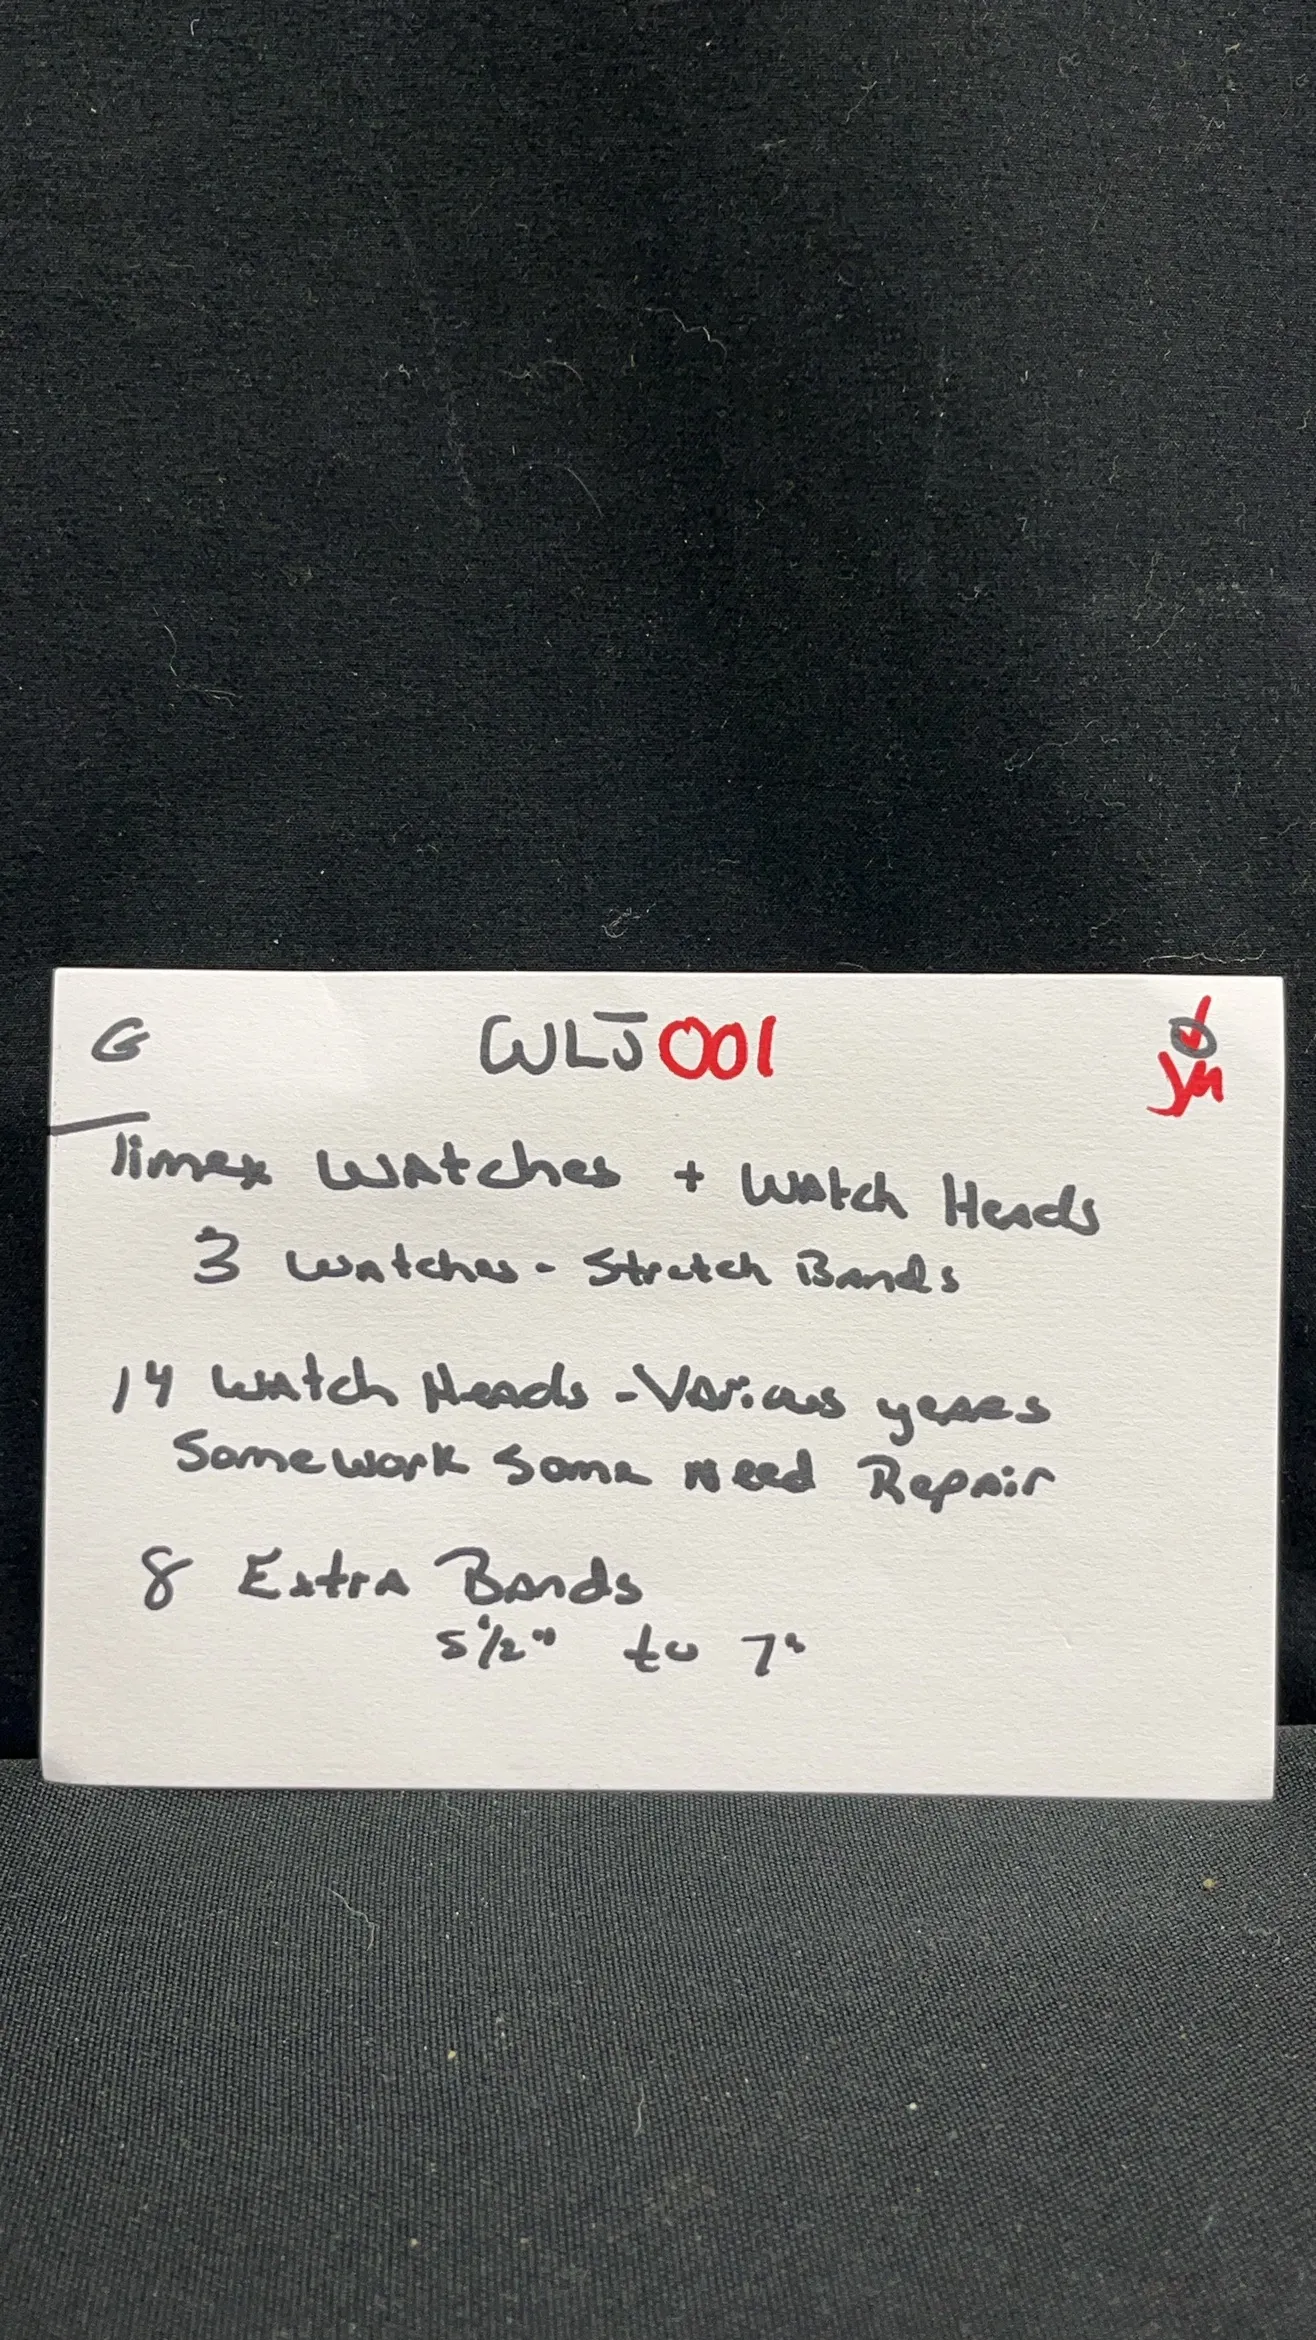 G WLJ001
Timex Watches + Watch Heads
3 Watches - Stretch Bands
14 Watch Heads - Various years
Some work Some need Repair
8 Extra Bands
5 1/2" to 7"